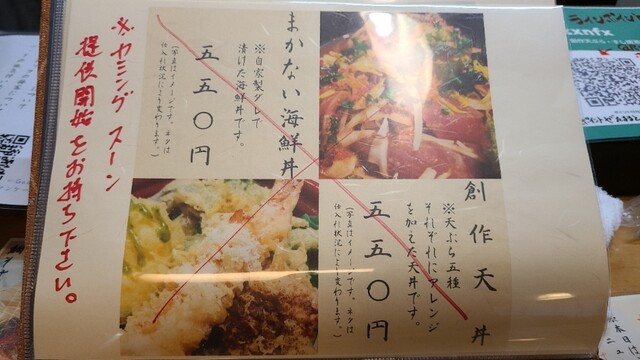 まかない海鮮丼
※自家製ダレで
漬けた海鮮丼です。
五五〇円
(写真はイメージです。ネタは
仕入れ状況により変わります。)
創作天丼
※天ぷら五種
それぞれにアレンジ
を加えた天丼です。
五五〇円
(写真はイメージです。ネタは
仕入れ状況により変わります。)
※カミング スーン
提供開始をお持ち下さい。